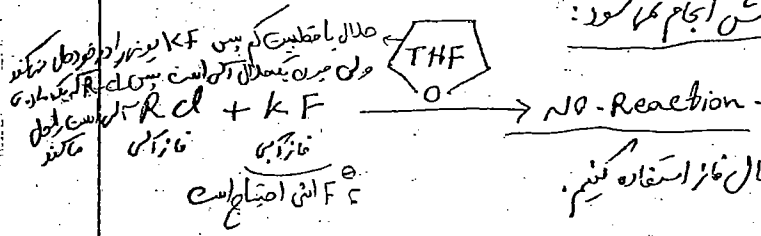 ش انجام نمی شود:
حلال با قطبیت کم پس KF یونی را در خود حل نمیکند
ولی چون یک حلال آلی است پس R-Cl که یک ماده‌ی
آلی است را حل
میکند
THF
O
RCl + KF → NO-Reaction-
فاز آلی فاز آبی
F⊖ احتیاج است
ال فاز استفاده کنیم.